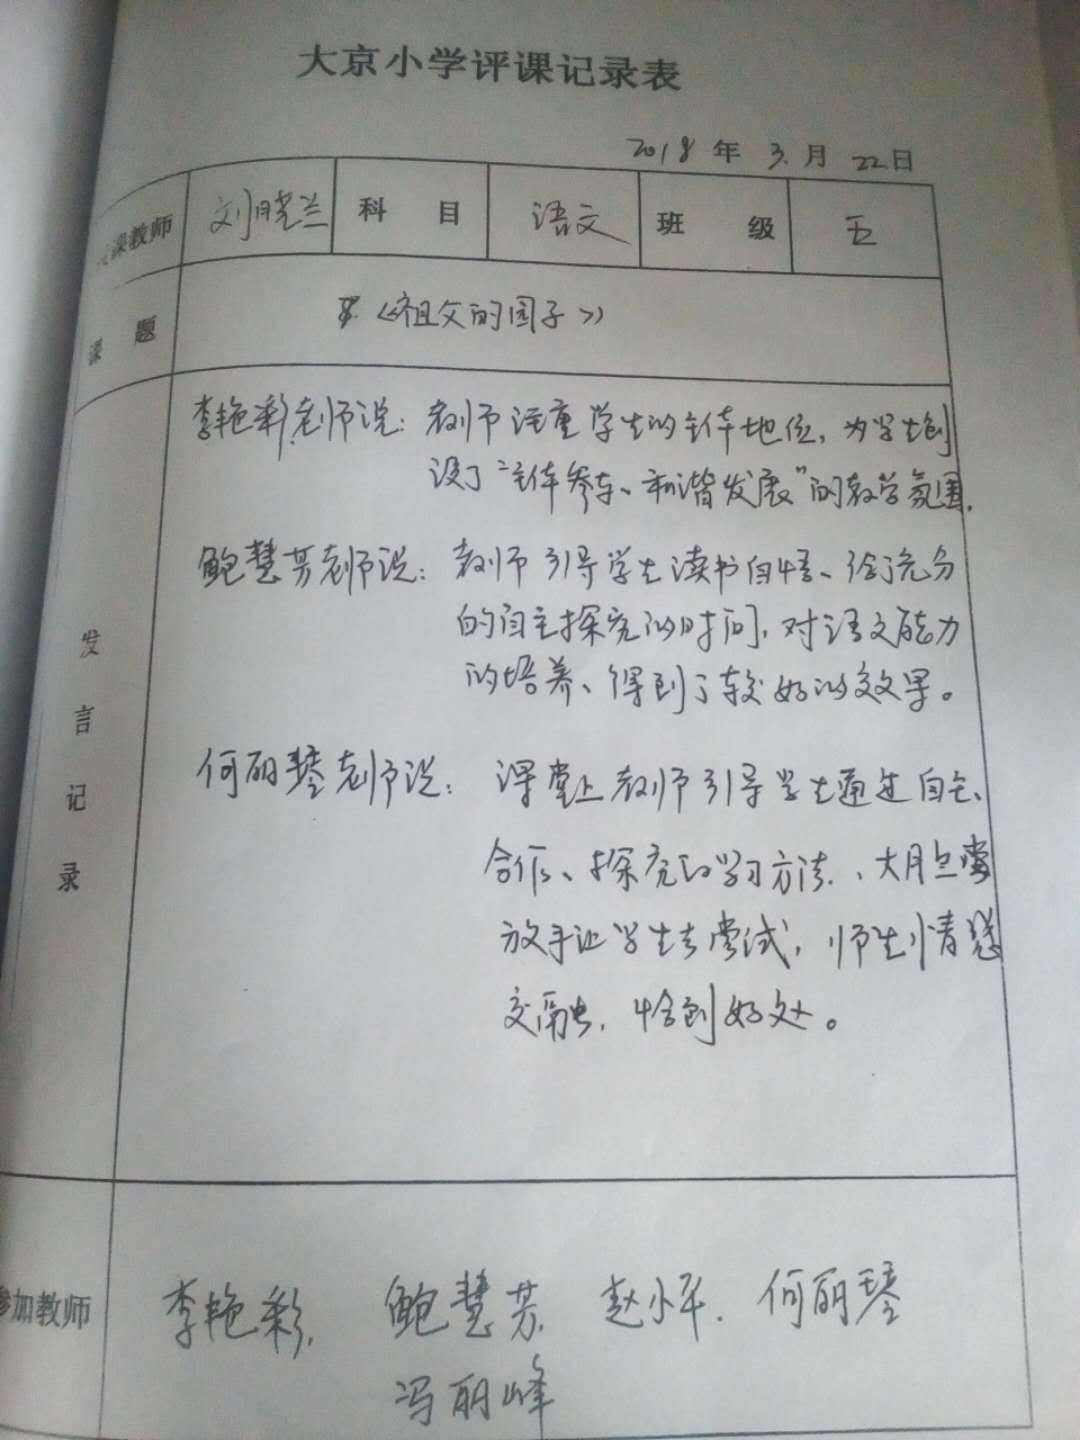 大京小学评课记录表
2018 年 3 月 22 日
课教师 刘晓兰 科 目 语文 班 级 五
课 题 《祖父的园子》
发言记录
李艳彩老师说：教师注重学生的主体地位，为学生创
设了"主体参与、和谐发展"的教学氛围。
鲍慧芳老师说：教师引导学生读书自悟、给了充分
的自主探究的时间，对语文能力
的培养、得到了较好的效果。
何丽琴老师说：课堂上教师引导学生通过自主、
合作、探究的学习方法、大胆
放手让学生去尝试，师生情感
交融，恰到好处。
参加教师 李艳彩 鲍慧芳 赵小军 何丽琴
冯丽峰